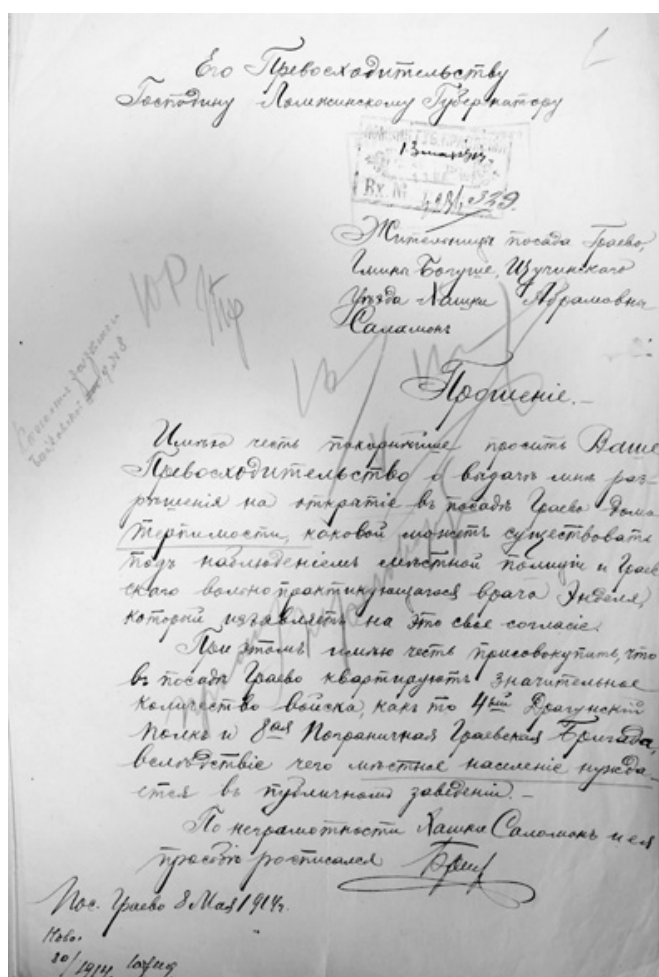 Его Превосходительству
Господину Ломжинскому Губернатору
13 мая 1914
Вх. №
Жительницы посада Граево,
Гмины Богуше, Щучинскаго
Уѣзда Хашки Абрамовны
Саламонъ
Прошеніе.-
Имѣю честь покорнѣйше просить Ваше
Превосходительство о выдачѣ мнѣ раз-
рѣшенія на открытіе въ посадѣ Граево Дома
Терпимости, каковой можетъ существовать
подъ наблюденіемъ мѣстной полиціи и Граев-
скаго вольнопрактикующагося врача Энделя,
который изъявляетъ на это свое согласіе.
При этомъ имѣю честь присовокупить, что
въ посадѣ Граево квартируютъ значительное
количество войска, какъ то 4ый Драгунскій
полкъ и 8ая Пограничная Граевская Бригада,
вслѣдствіе чего мѣстное населеніе нужда-
ется въ публичномъ заведеніи.-
По неграмотности Хашки Саломонъ и ея
просьбѣ росписался
Пос. Граево 8 Мая 1914г.